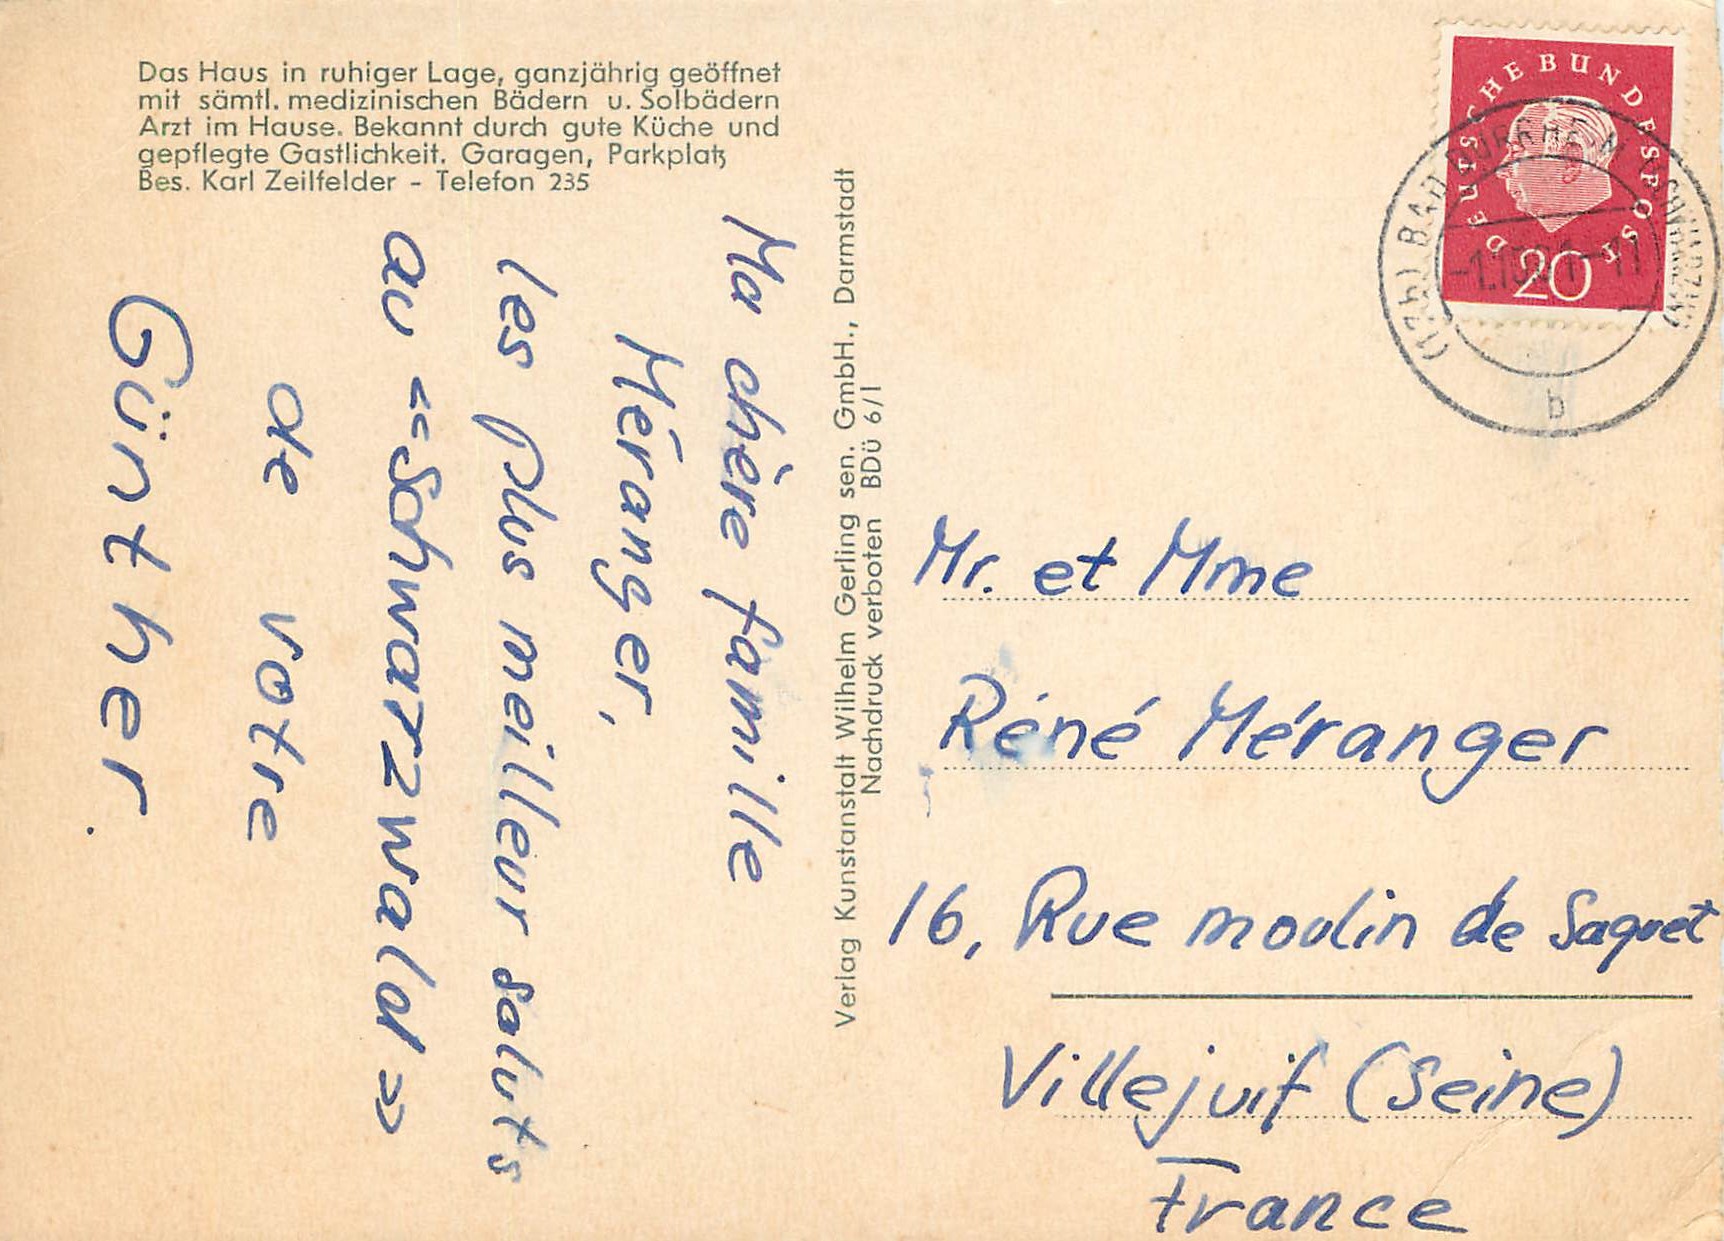 Das Haus in ruhiger Lage, ganzjährig geöffnet
mit sämtl. medizinischen Bädern u. Solbädern
Arzt im Hause. Bekannt durch gute Küche und
gepflegte Gastlichkeit. Garagen, Parkplatz
Bes. Karl Zeilfelder - Telefon 235
Ma chère famille
Méranger,
les plus meilleur saluts
au «Schwarzwald»
de votre
Günther.
Verlag Kunstanstalt Wilhelm Gerling sen. GmbH., Darmstadt
Nachdruck verboten BDü 6/1
DEUTSCHE BUNDESPOST
20
BAD DÜRRHEIM
b
Mr. et Mme
Réné Méranger
16, Rue moulin de Saquet
Villejuif (Seine)
France